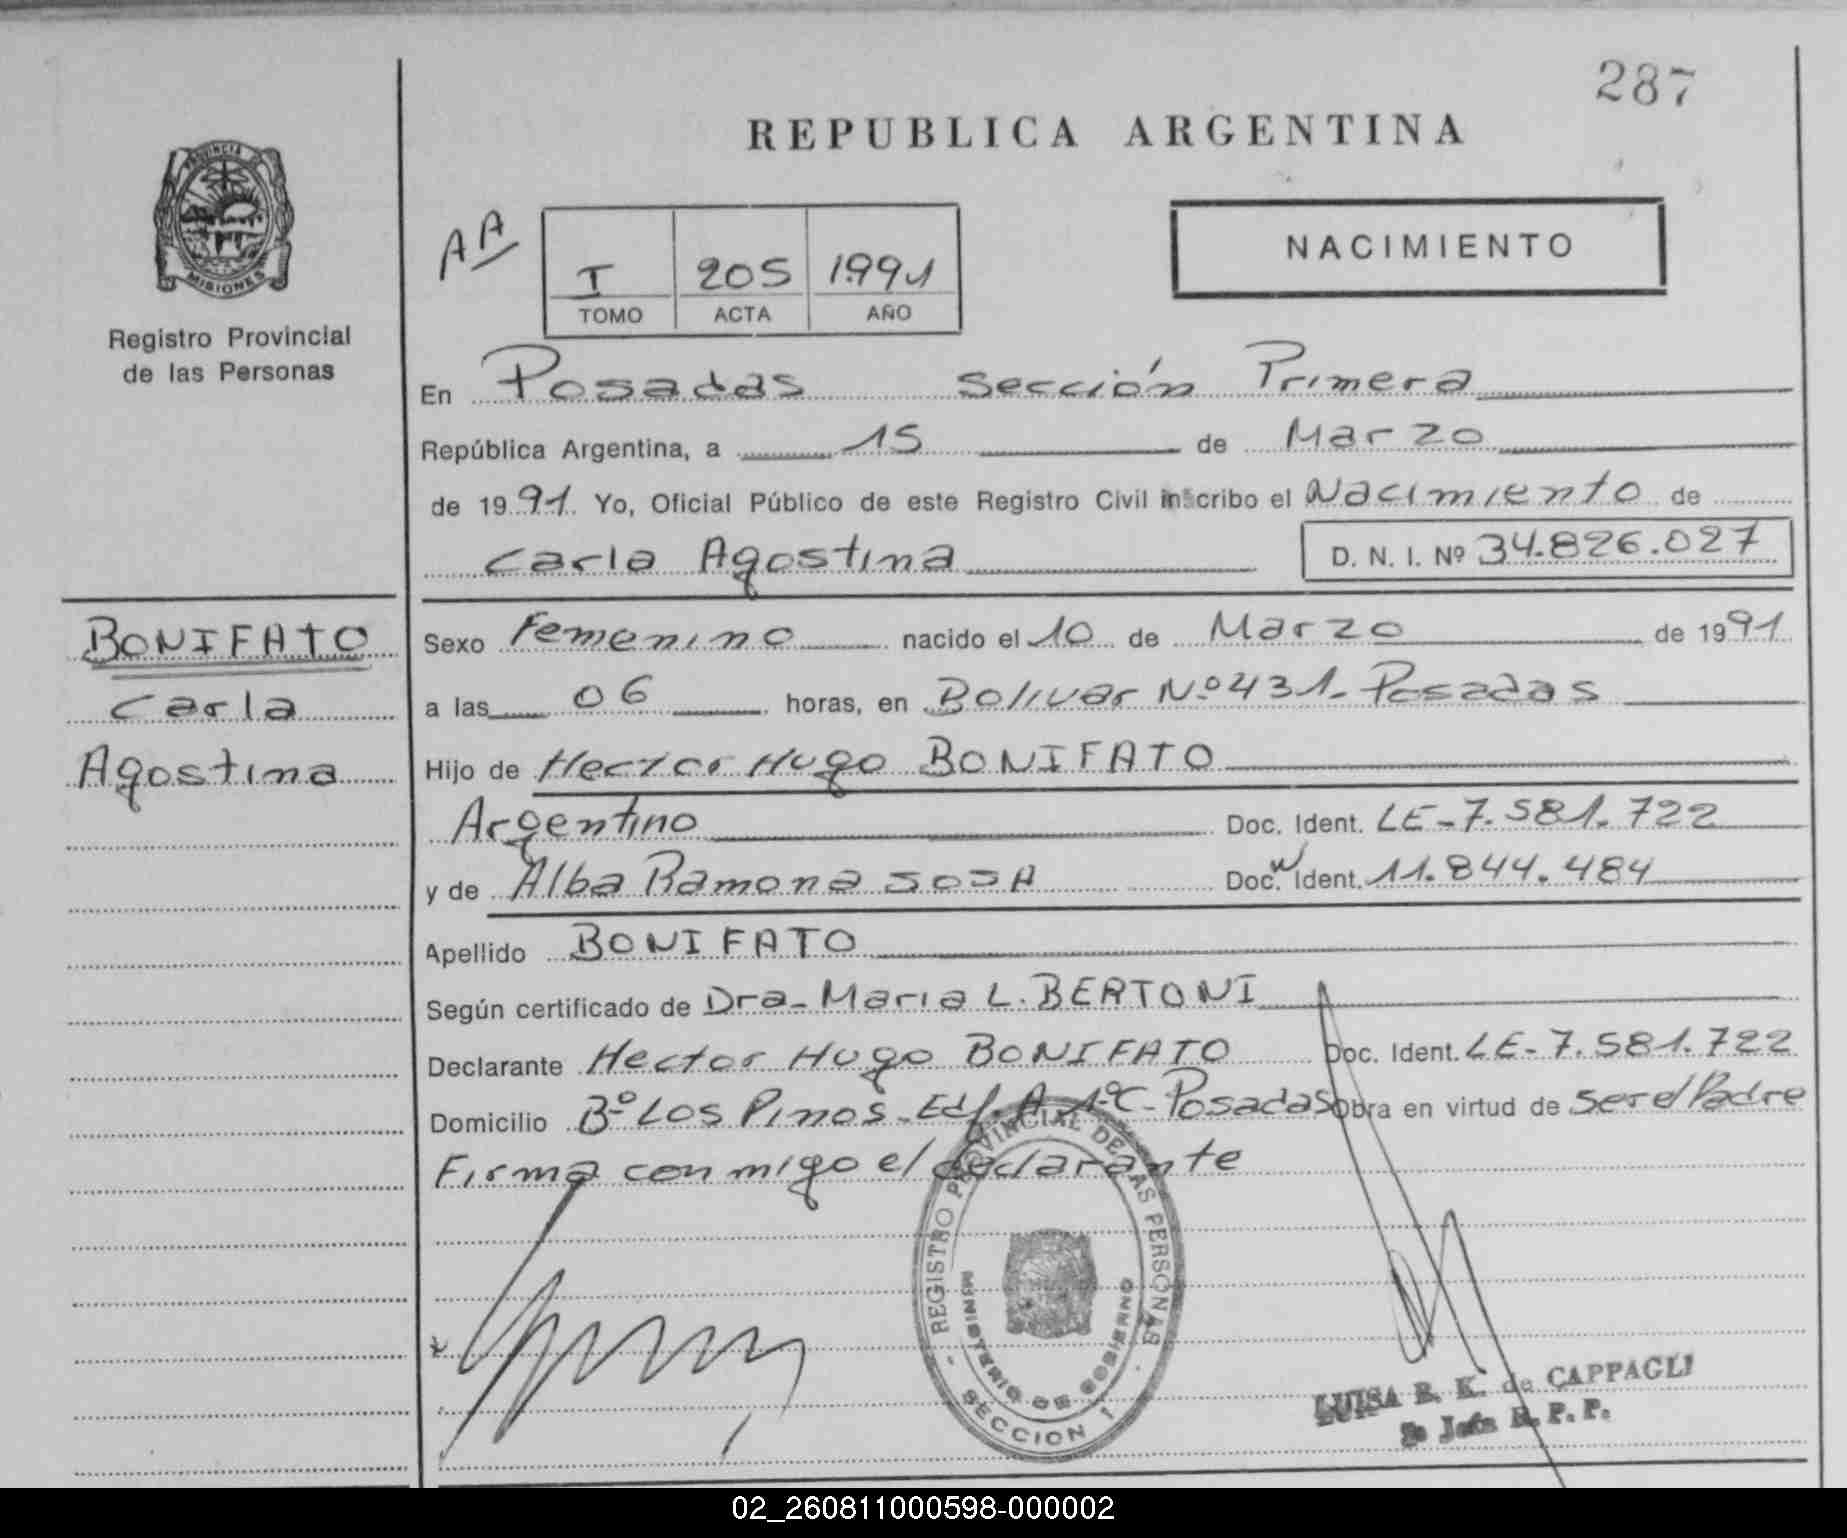 287
REPUBLICA ARGENTINA
PROVINCIA DE
MISIONES
Registro Provincial
de las Personas
AA
I 205 1991
TOMO ACTA AÑO
NACIMIENTO
En Posadas Sección Primera
República Argentina, a 15 de Marzo
de 1991 Yo, Oficial Público de este Registro Civil inscribo el Nacimiento de
Carla Agostina D. N. I. Nº 34.826.027
BONIFATO
Carla
Agostina
Sexo Femenino nacido el 10 de Marzo de 1991
a las 06 horas, en Bolivar Nº 431- Posadas
Hijo de Hector Hugo BONIFATO
Argentino Doc. Ident. LE-7.581.722
y de Alba Ramona SOSA Doc. Ident. 11.844.484
Apellido BONIFATO
Según certificado de Dra- Maria L. BERTONI
Declarante Hector Hugo BONIFATO Doc. Ident. LE-7.581.722
Domicilio Bº Los Pinos- Edf. A 1ºC- Posadas Obra en virtud de ser el Padre
Firma conmigo el declarante
REGISTRO PROVINCIAL DE LAS PERSONAS
MINISTERIO DE GOBIERNO
- SECCION 1 -
LUISA B. K. de CAPPAGLI
R. P. P.
02_260811000598-000002